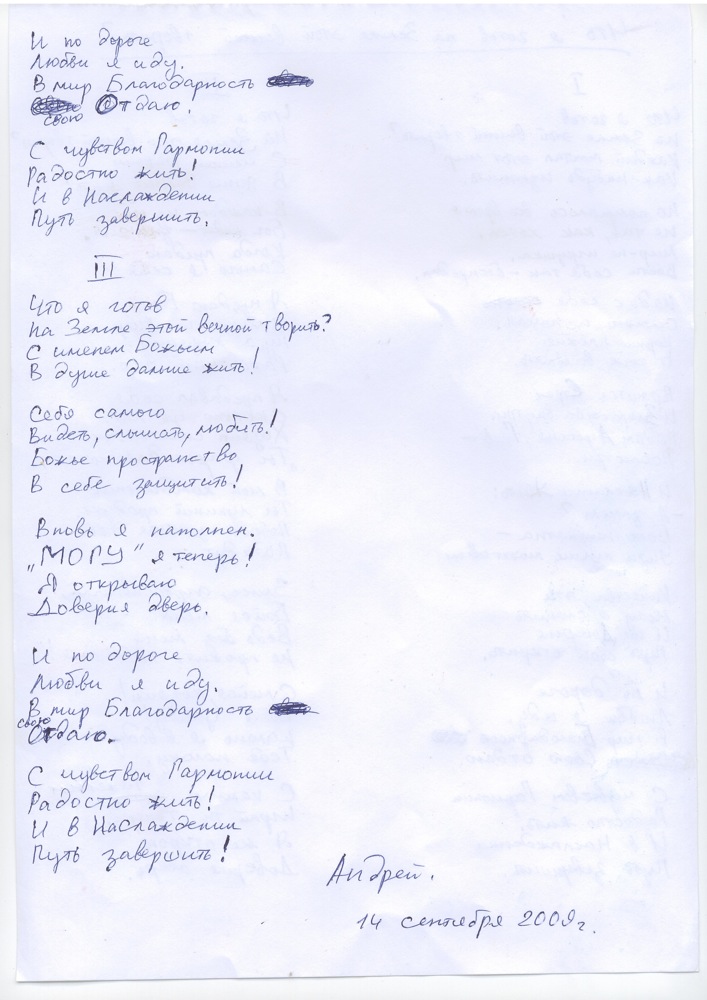 И по дороге
Любви я иду.
В мир Благодарность
свою Отдаю!
С чувством Гармонии
Радостно жить!
И в Наслаждении
Путь завершить.
III
Что я готов
На Земле этой вечной творить?
С именем Божьим
В душе дальше жить!
Себя самого
Видеть, слышать, любить!
Божье пространство
В себе защитить!
Вновь я наполнен.
„МОГУ" я теперь!
Я открываю
Доверия дверь.
И по дороге
Любви я иду.
В мир Благодарность
свою Отдаю.
С чувством Гармонии
Радостно жить!
И в Наслаждении
Путь завершить!
Андрей.
14 сентября 2009г.